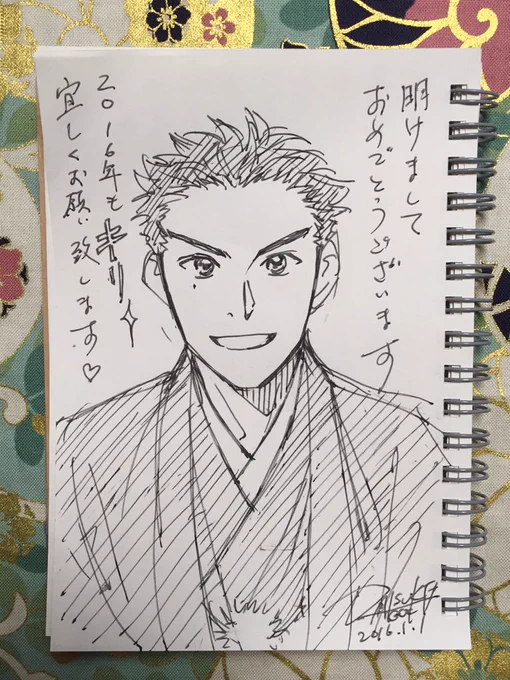 明けまして
おめでとうございます
2016年も
宜しくお願い致します♡
2016.1.1